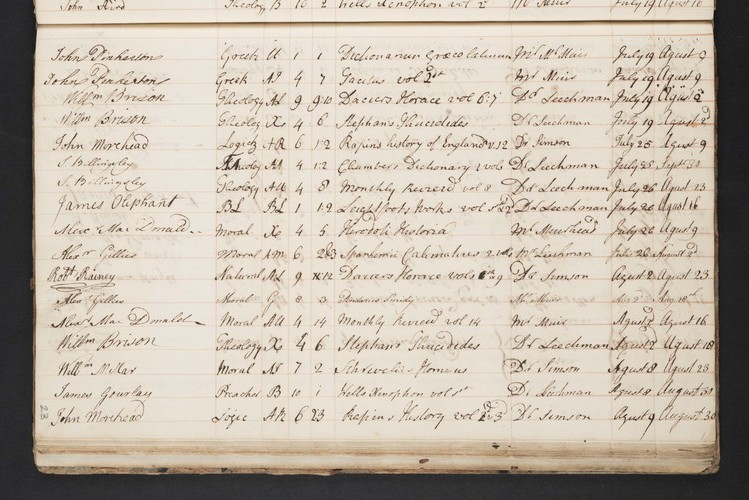 John Theology B 10 2 Hells Xenophon vol 2 Mr Muir July 19 Agust 16
John Pinkerton Greek U 1 1 Dictionarium Græcolatinum Mr Muir July 19 Agust 9
John Pinkerton Greek 4 7 Tacitus vol 2d Mr Muir July 19 Agust 9
Willm Brison Theology 9 9:10 Daciers Horace vol 6:7 Dr Leechman July 19 Agust 2
Willm Brison Theology X 4 6 Stephan's Thucidides Dr Leechman July 19 Agust 2d
John Morehead Logick AR 6 1:2 Rapins history of England v. 1.2 Dr Simson July 25 Agust 9
S. Billingsley Theology 4 1:2 Chambers Dictionary 2 vols Dr Leechman July 25 Septr
S Billingsley Theology AU 4 8 Monthly Review vol 8 Dr Leechman July 26 Agust 23
James Oliphant BL BL 1 1:2 Works vol Dr Leechman July 26 Agust 16
Alexr Mac Donald Moral X 4 5 Herodoti Historia Mr Muirhead July 26 Agust 9
Alexr Gillies Moral AM 6 2&3 2 Mr Leechman 26 August 2d
Robt Rainey Natural 9 Daciers Horace vols 9 Dr Simson Agust 2 Agust 23
Alexr Gillies Moral G 8 3 Mr Muir
Alexr Mac Donald Moral AU 4 14 Monthly Review vol 14 Mr Muir Agust 2 Agust 16
Willm Brison Theology X 4 6 Stephans Thucidides Dr Leechman Agust 2 Agust 18
Willm Millar Moral 7 2 Schrevelii Homerus Dr Simson Agust 8 Agust 23
James Gourlay Preacher B 10 1 Hells Xenophon vol 1st Dr Leechman Agust 8 August 30
John Morehead Logic AR 6 23 Rapins History vol 2:3 Dr Simson Agust 9 August 30
23